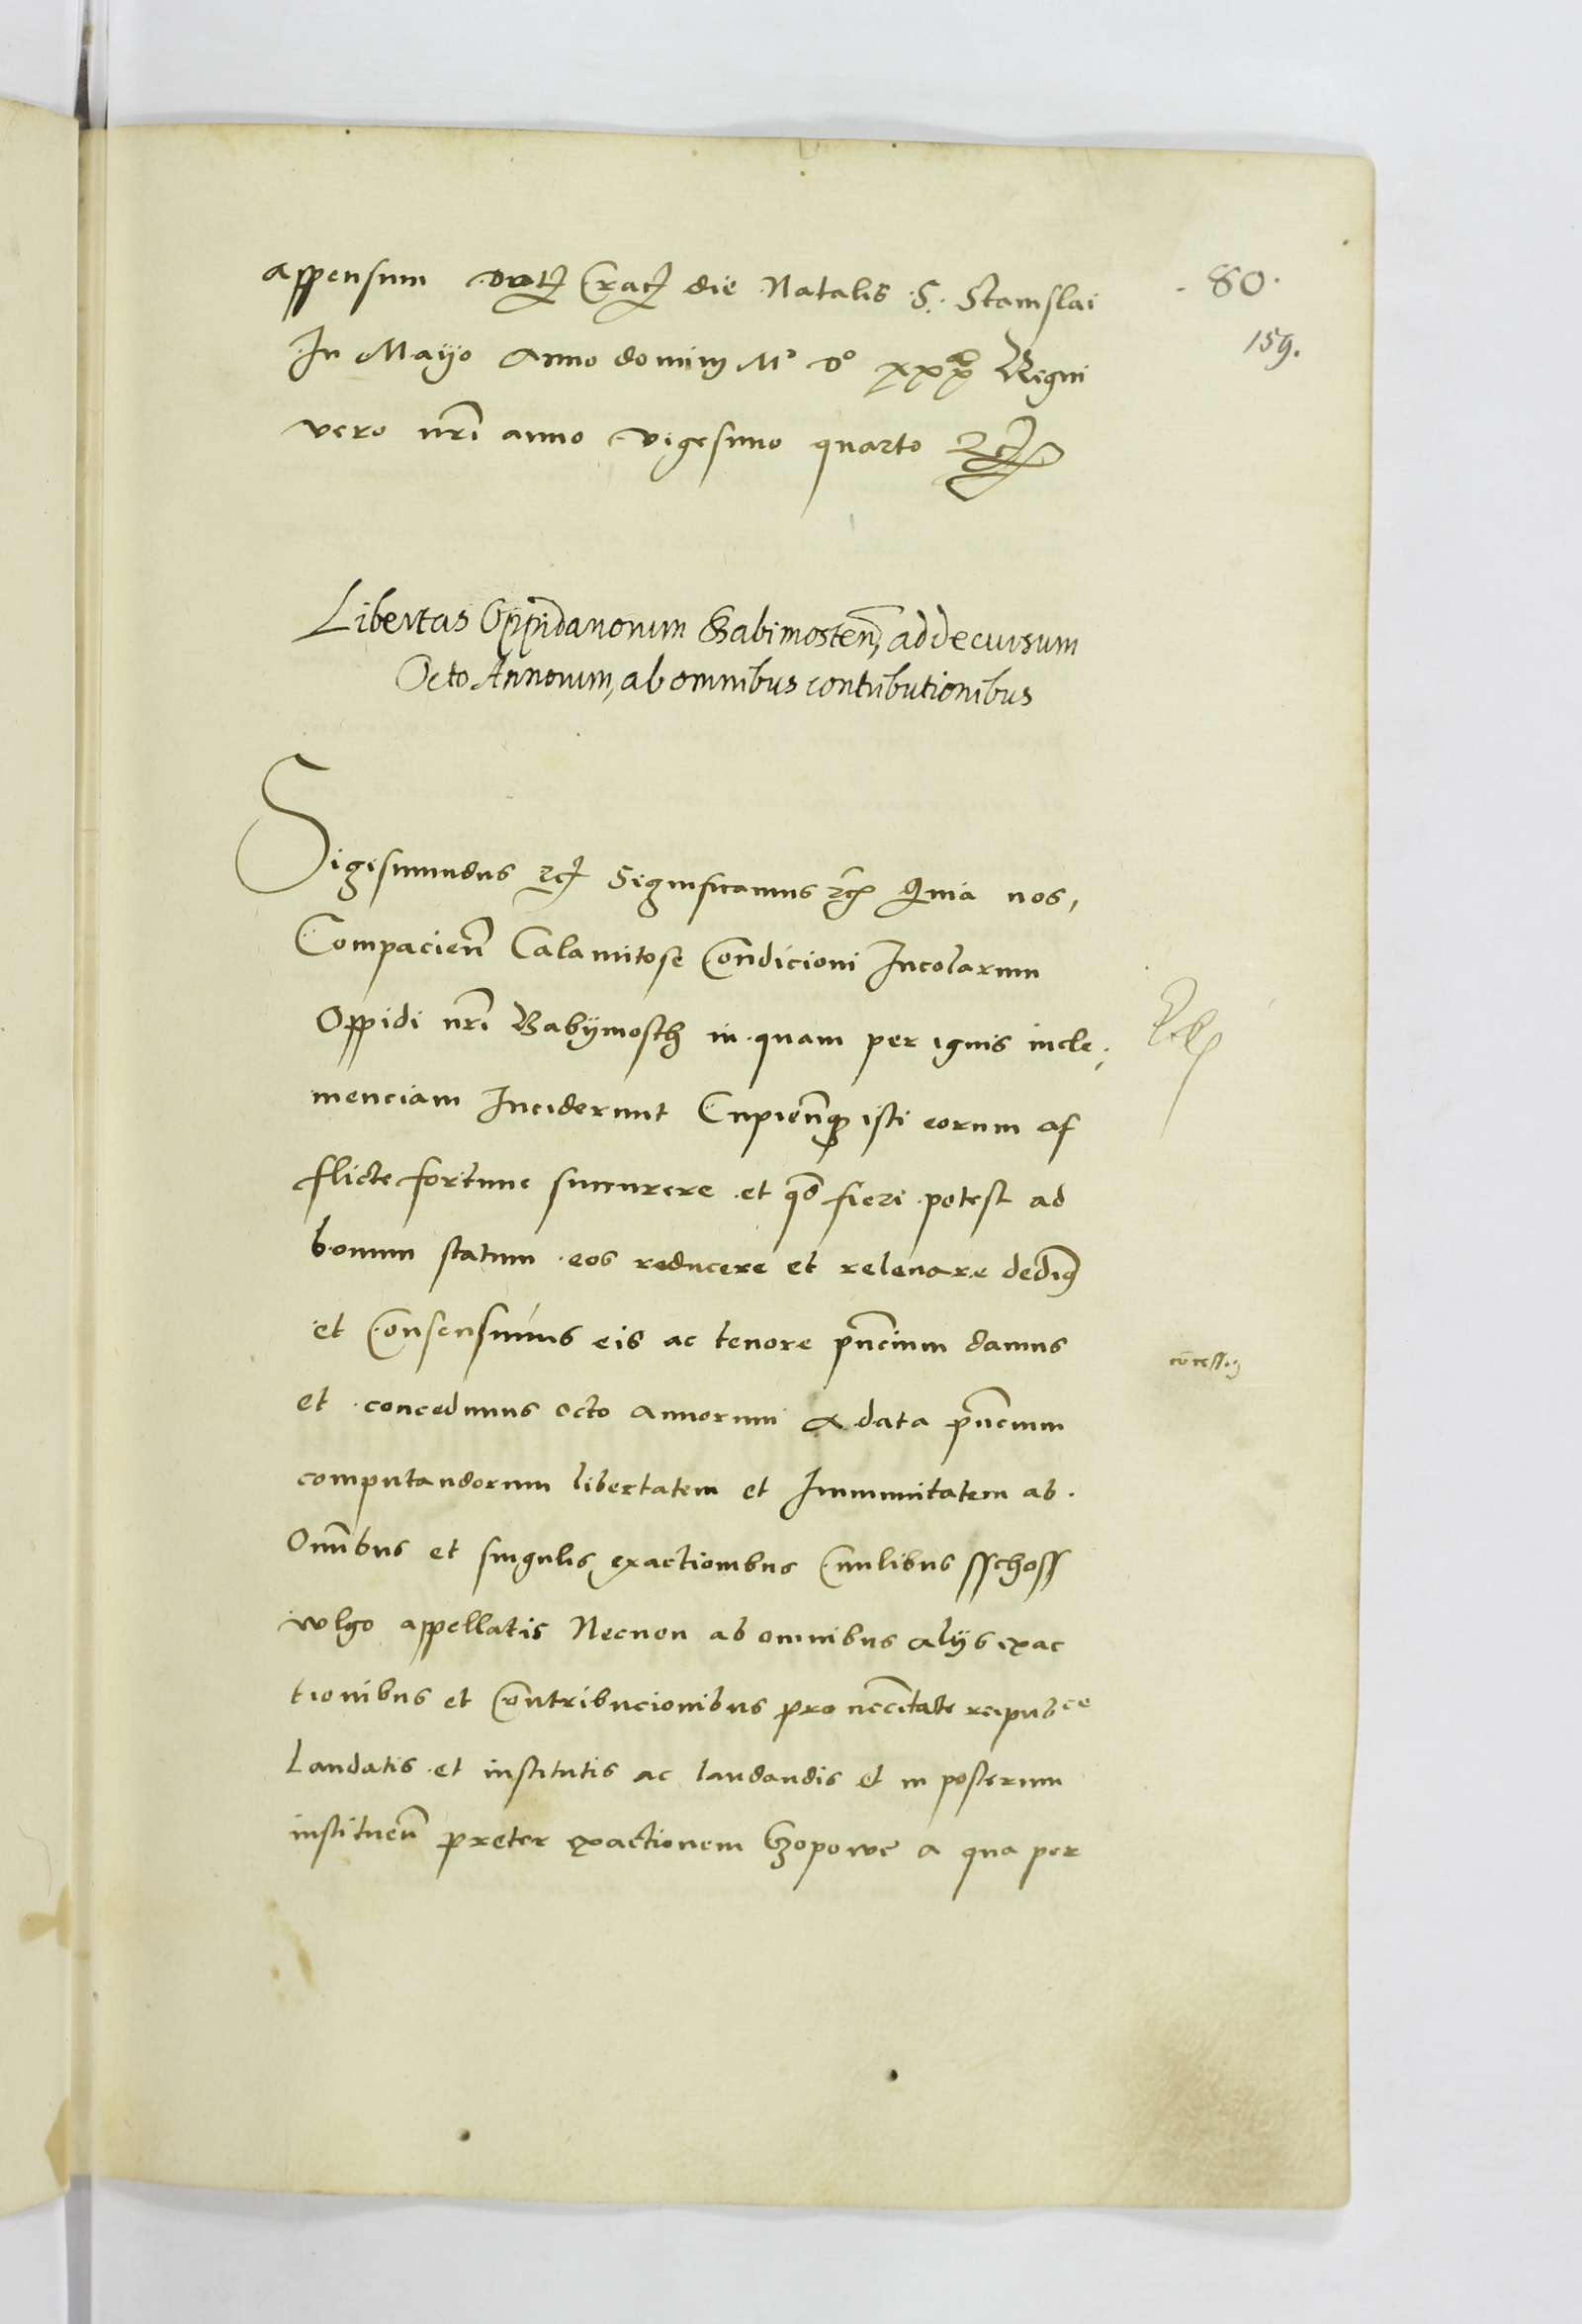 appensum datῑ Cracῑ die Natalis .S. Stanislai
. 80 .
159.
In Mayo Anno dominỹ Mº dº xxxº Regni
vero nrī anno vigesimo quarto etc
Libertas Oppidanorum Babimosten, ad decursum
Octo Annorum, ab omnibus contributionibus
Sigesmundus etc Significamus etc Quia nos,
Compacien̄ Calamitose Condicioni Incolarum
Oppidi nrī Babijmosth in quam per ignis incle,
menciam Inciderunt Cupien̄qȝ isti eorum af
flicte fortune succurere et qō fieri potest ad
bonum statum eos reducere et relevare dedimꝰ
et Consensimus eis ac tenore pn̄cium damus
concessio
et concedimus octo annorum a data pn̄cium
computandorum libertatem et Immunitatem ab
Omn̄bus et singulis exactionibus Civilibus sschoss
wlgo appellatis Necnon ab omnibus alijs exac
tionibus et Contribucionibus pro necc̄itate reipubce
Laudatis et institutis ac laudandis et in posterum
instituen̄ preter exactionem Czopowe a qua per